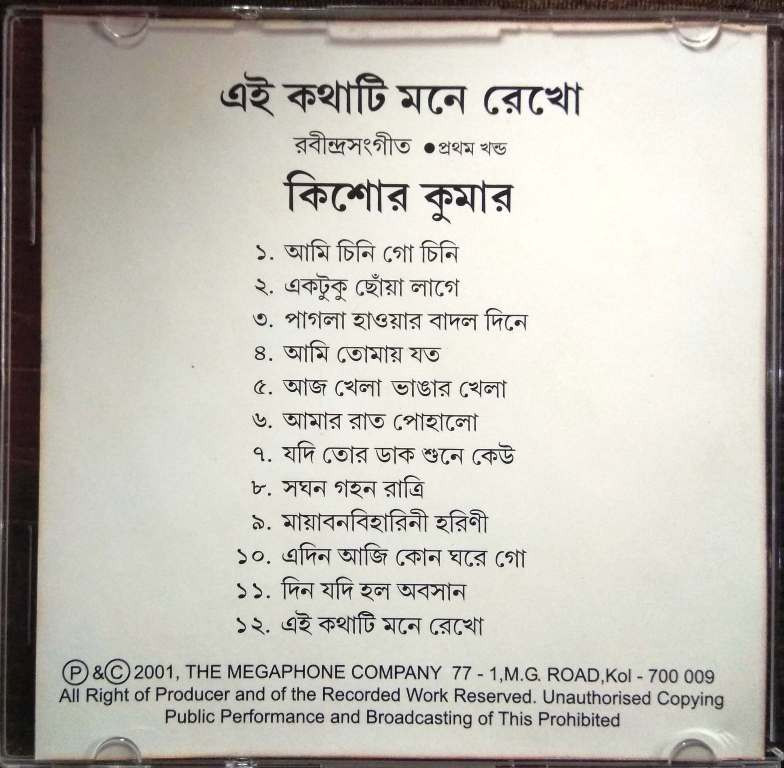 এই কথাটি মনে রেখো
রবীন্দ্রসংগীত ●প্রথম খন্ড
কিশোর কুমার
১. আমি চিনি গো চিনি
২. একটুকু ছোঁয়া লাগে
৩. পাগলা হাওয়ার বাদল দিনে
৪. আমি তোমায় যত
৫. আজ খেলা ভাঙার খেলা
৬. আমার রাত পোহালো
৭. যদি তোর ডাক শুনে কেউ
৮. সঘন গহন রাত্রি
৯. মায়াবনবিহারিনী হরিণী
১০. এদিন আজি কোন ঘরে গো
১১. দিন যদি হল অবসান
১২. এই কথাটি মনে রেখো
Ⓟ &Ⓒ 2001, THE MEGAPHONE COMPANY 77 - 1,M.G. ROAD,Kol - 700 009
All Right of Producer and of the Recorded Work Reserved. Unauthorised Copying
Public Performance and Broadcasting of This Prohibited